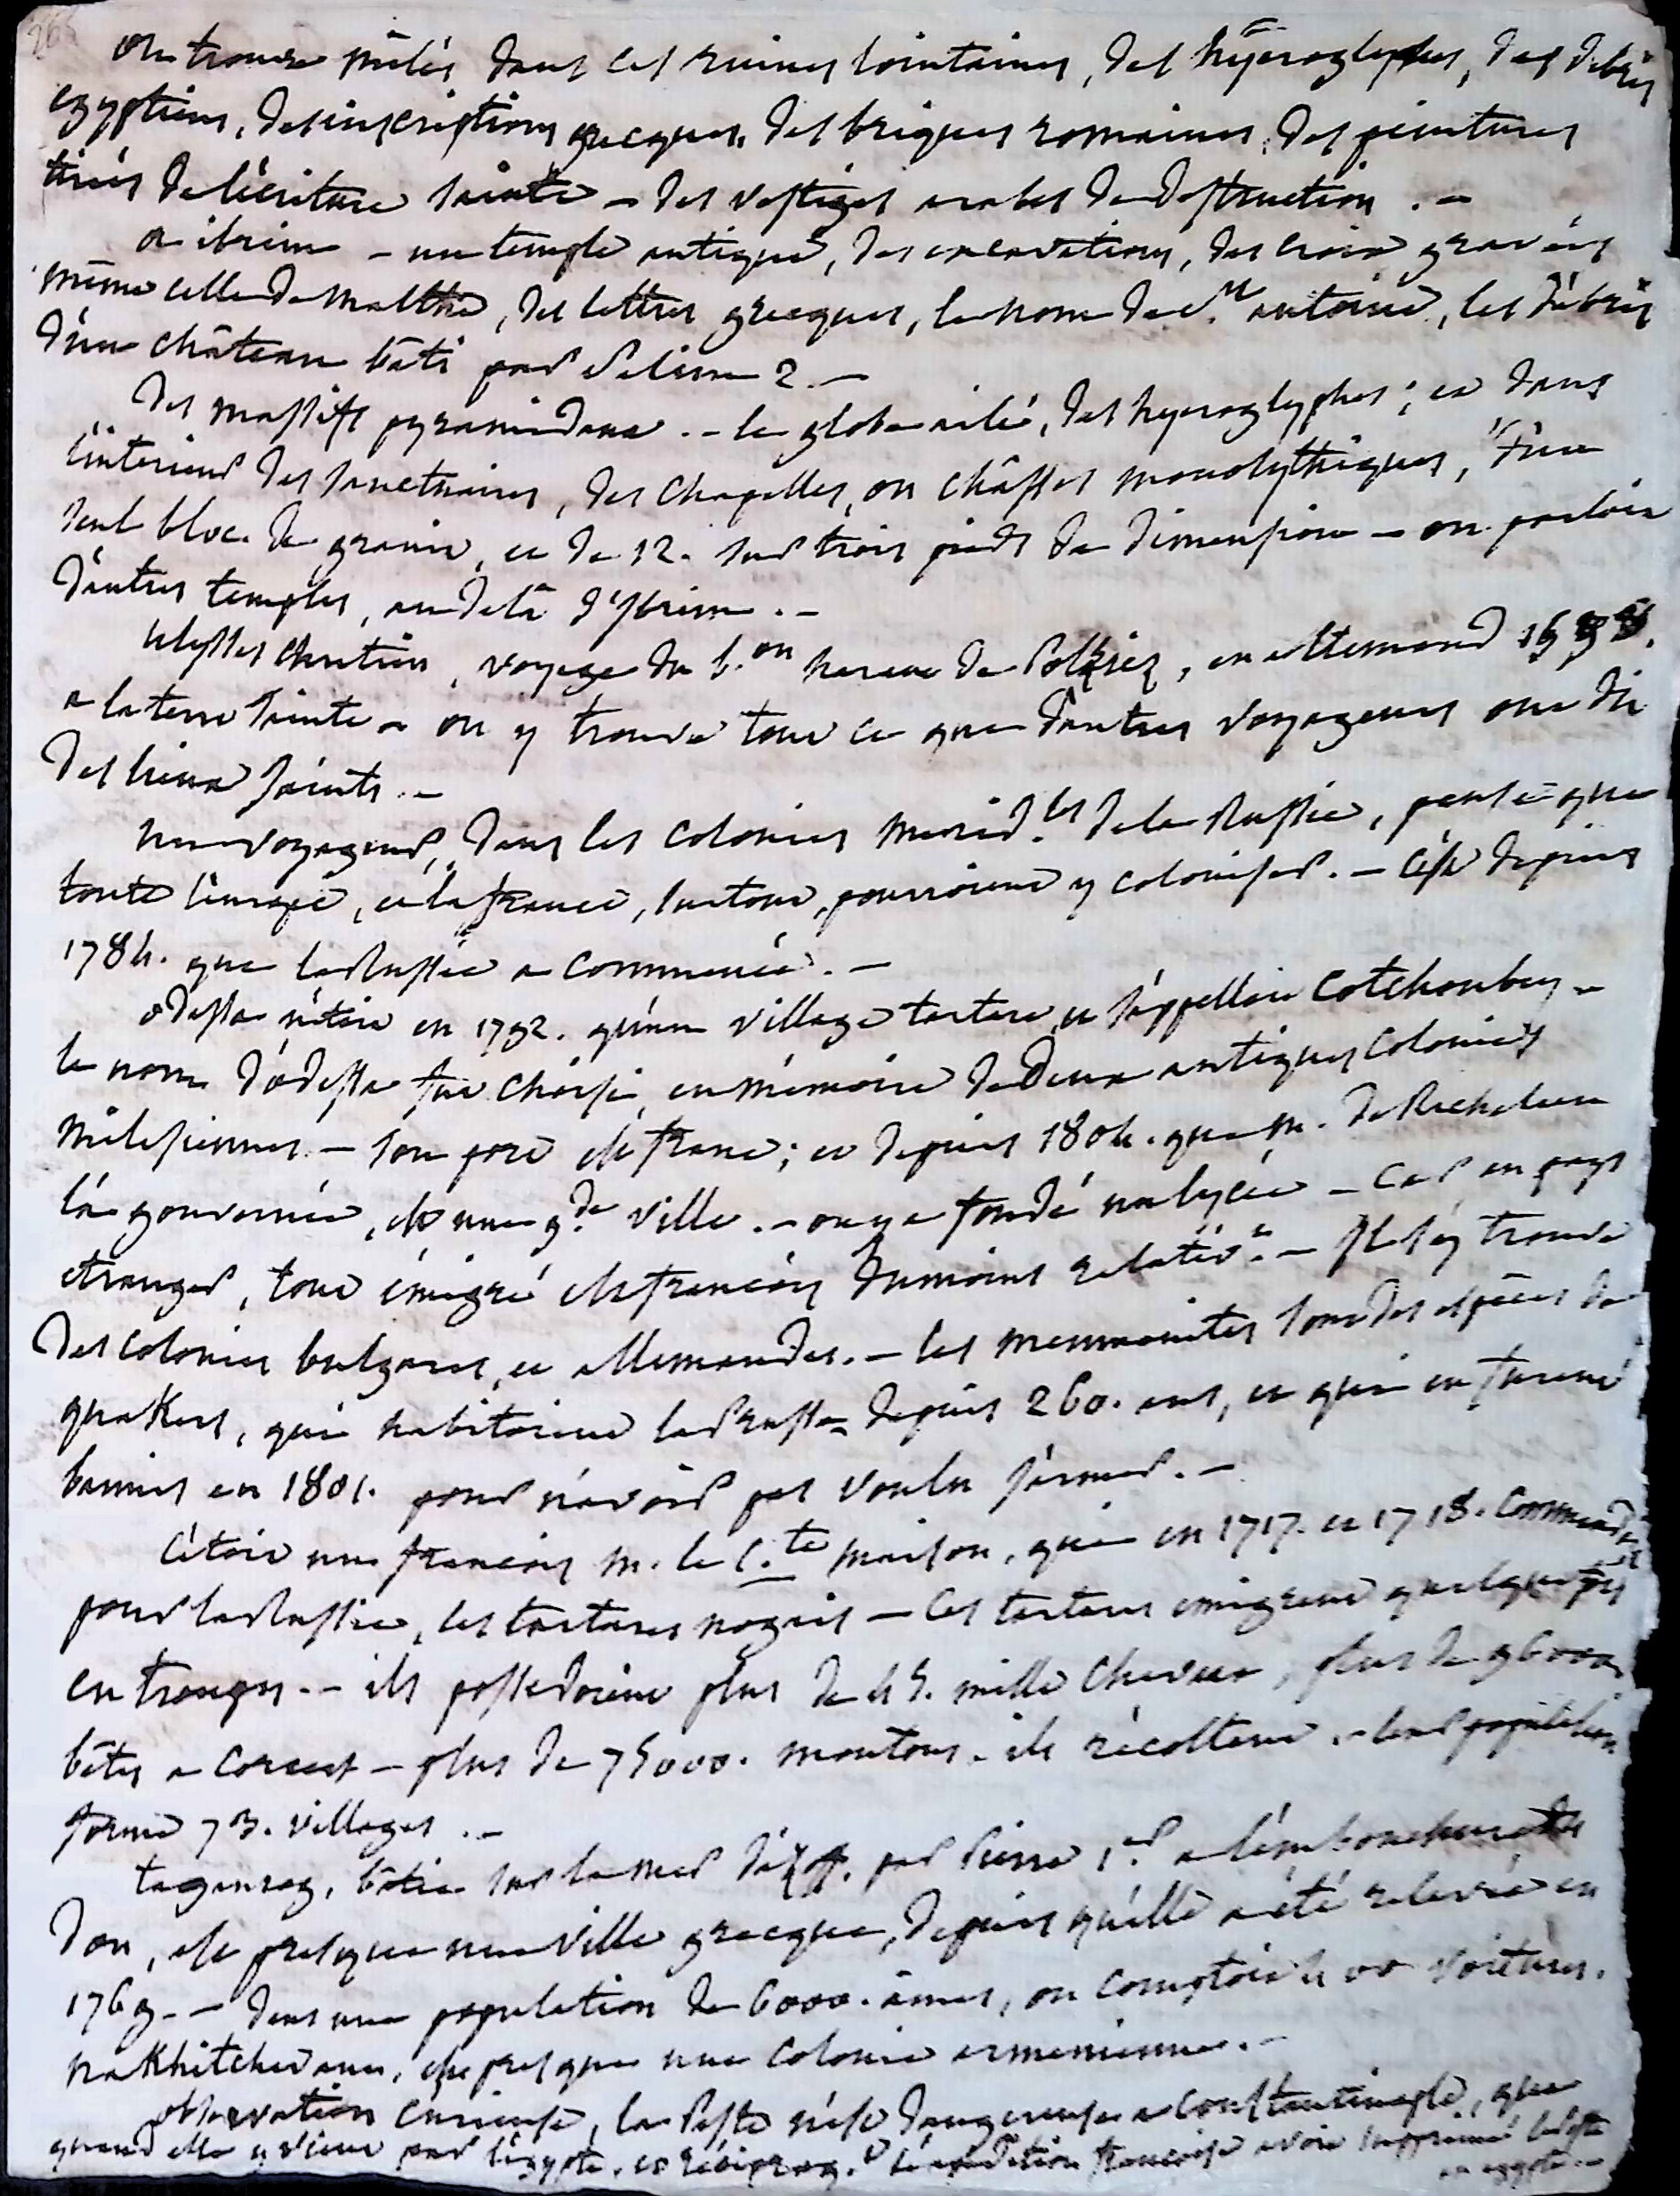 266
on trouve mêlés dans ces ruines lointaines, des hyéroglyphes, des débris
egyptiens, des inscriptions grecques, des briques romaines, des peintures
tirées de l'écriture sainte – des vestiges arabes de destruction. –
a ibrim – un temple antique, des excavations, des croix gravées
même celle de malthe, des lettres grecques, le nom de st antoine, les débris
d'un château bâti par selim 2. –
des massifs pyramidaux. – le globe ailé, des hyeroglyphes; et dans
l'interieur des sanctuaires, des chapelles, ou châsses monolythiques, d'un
seul bloc de granit, et de 12. sur trois pieds de dimension – on parloit
d'autres temples, au dela d'ybrim. –
ulysses chretien, voyage du b.on de , en allemand
a la terre sainte – on y trouve tout ce que d'autres voyageurs ont dit
des lieux saints. –
un voyageur, dans les colonies merid.les de la Russie, pense que
toute l'europe, et la france, surtout, pourroient y coloniser. – c'est depuis
1784. que la Russie a commencé. –
odessa n'étoit en 1792. qu'un village tartare et s'appelloit Cotchoubey –
le nom d'odessa fut choisi, en mémoire de deux antiques colonies
milesiennes. – son port est franc; et depuis 1804. que m. de Richelieu
l'a gouverné, est une g.de ville. – on y a fondé un lycée – car en pays
etranger, tout émigré est françois du moins relativ.t – il s'y trouve
des colonies bulgares, et allemandes. – les mennonites sont des espèces de
quakers, qui habitoient la Prusse depuis 260. ans, et qui en furent
bannis en 1801. pour n'avoir pas voulu s'armer. –
c'étoit un françois m. le C.te maison, qui en 1717. et 1718. commandoit
pour la Russie, les tartares nogais – ces tartares emigrent quelquefois
en troupes. – ils possedoient plus de 45. mille chevaux, plus de 96000
bêtes a cornes – plus de 75000. moutons. ils récoltent. – leur population
forme 73. villages. –
taganrog, bâtie sur la mer d'azoff, par Pierre 1.er a l'embouchure du
don, est presque une ville grecque, depuis qu'elle a été relevée en
1769. – dans une population de 6000. âmes, on comptoit 400 voitures.
nakhitchevane, est presque une colonie armenienne. –
observation curieuse, la Peste n'est dangereuse a constantinople, que
quand elle y vient par l'egypte, et réciproq.t l'expédition françoise avoit supprimé la peste
en egypte. –